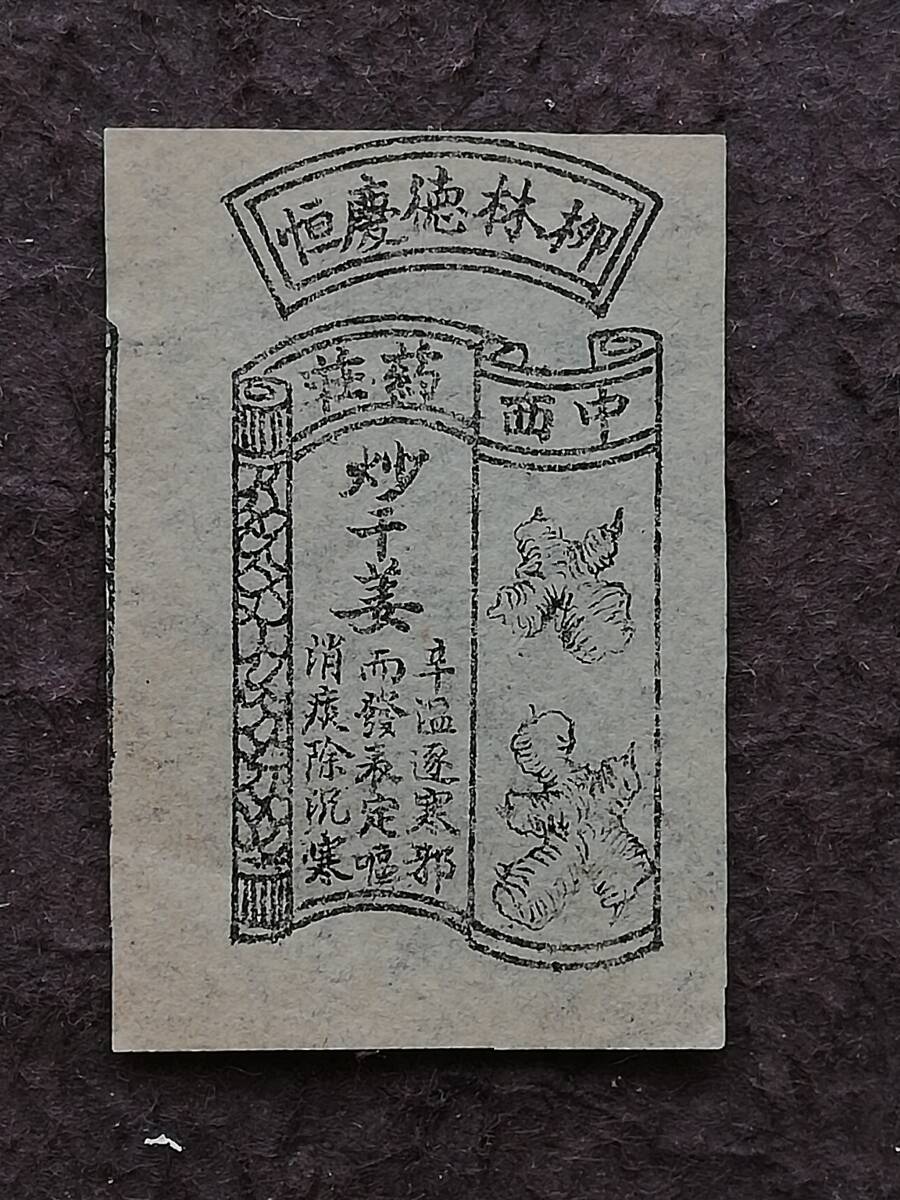 柳林德慶恒
中西药莊
炒干姜
辛温逐寒邪
而發表定嘔
消痰除沉寒